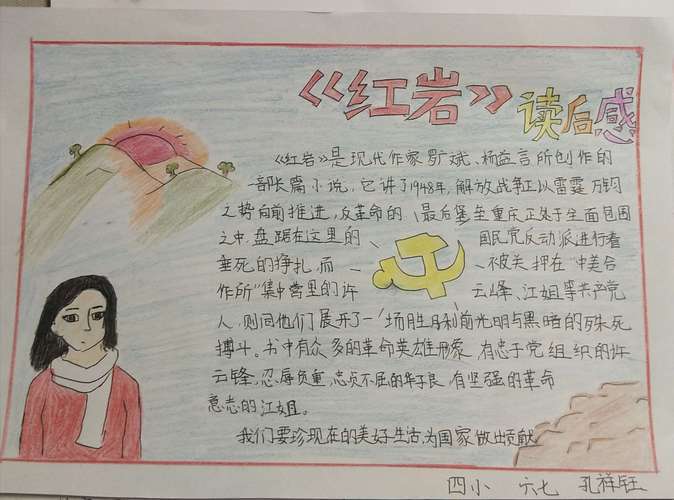 《红岩》读后感
《红岩》是现代作家罗广斌、杨益言所创作的
一部长篇小说，它讲了1948年，解放战争正以雷霆万钧
之势向前推进，反革命的最后堡垒重庆正处于全面包围
之中，盘踞在这里的国民党反动派进行着
垂死的挣扎，而不被关押在"中美合
作所"集中营里的许云峰、江姐等共产党
人，则同他们展开了一场胜利前光明与黑暗的殊死
搏斗。书中有众多的革命英雄形象，有忠于党组织的许
云锋，忍辱负重，忠贞不屈的华子良，有坚强的革命
意志的江姐。
我们要珍现在的美好生活，为国家做出贡献
四小 六七 孔祥钰